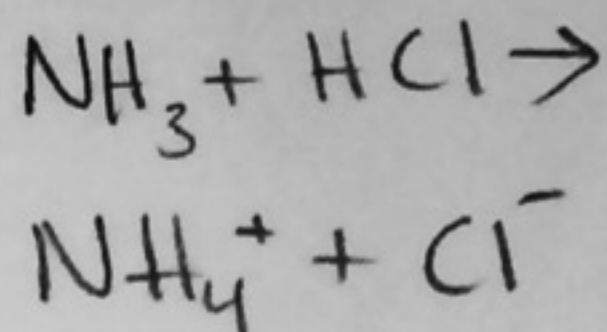 NH₃ + HCl →
NH₄⁺ + Cl⁻